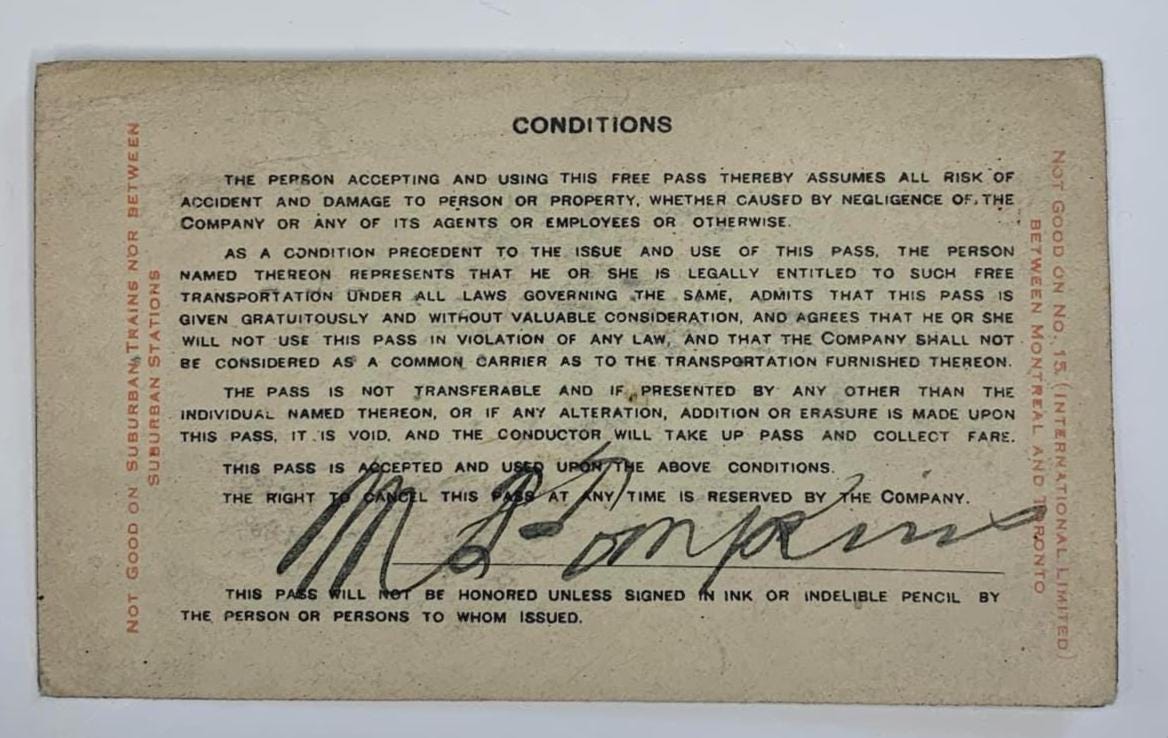 CONDITIONS
THE PERSON ACCEPTING AND USING THIS FREE PASS THEREBY ASSUMES ALL RISK OF
ACCIDENT AND DAMAGE TO PERSON OR PROPERTY, WHETHER CAUSED BY NEGLIGENCE OF THE
COMPANY OR ANY OF ITS AGENTS OR EMPLOYEES OR OTHERWISE.
AS A CONDITION PRECEDENT TO THE ISSUE AND USE OF THIS PASS, THE PERSON
NAMED THEREON REPRESENTS THAT HE OR SHE IS LEGALLY ENTITLED TO SUCH FREE
TRANSPORTATION UNDER ALL LAWS GOVERNING THE SAME, ADMITS THAT THIS PASS IS
GIVEN GRATUITOUSLY AND WITHOUT VALUABLE CONSIDERATION, AND AGREES THAT HE OR SHE
WILL NOT USE THIS PASS IN VIOLATION OF ANY LAW, AND THAT THE COMPANY SHALL NOT
BE CONSIDERED AS A COMMON CARRIER AS TO THE TRANSPORTATION FURNISHED THEREON.
THE PASS IS NOT TRANSFERABLE AND IF PRESENTED BY ANY OTHER THAN THE
INDIVIDUAL NAMED THEREON, OR IF ANY ALTERATION, ADDITION OR ERASURE IS MADE UPON
THIS PASS, IT IS VOID, AND THE CONDUCTOR WILL TAKE UP PASS AND COLLECT FARE.
THIS PASS IS ACCEPTED AND USED UPON THE ABOVE CONDITIONS.
THE RIGHT TO CANCEL THIS PASS AT ANY TIME IS RESERVED BY THE COMPANY.
Tompkins
THIS PASS WILL NOT BE HONORED UNLESS SIGNED IN INK OR INDELIBLE PENCIL BY
THE PERSON OR PERSONS TO WHOM ISSUED.
NOT GOOD ON SUBURBAN TRAINS NOR BETWEEN
SUBURBAN STATIONS
NOT GOOD ON NO. 15, (INTERNATIONAL LIMITED)
BETWEEN MONTREAL AND TORONTO